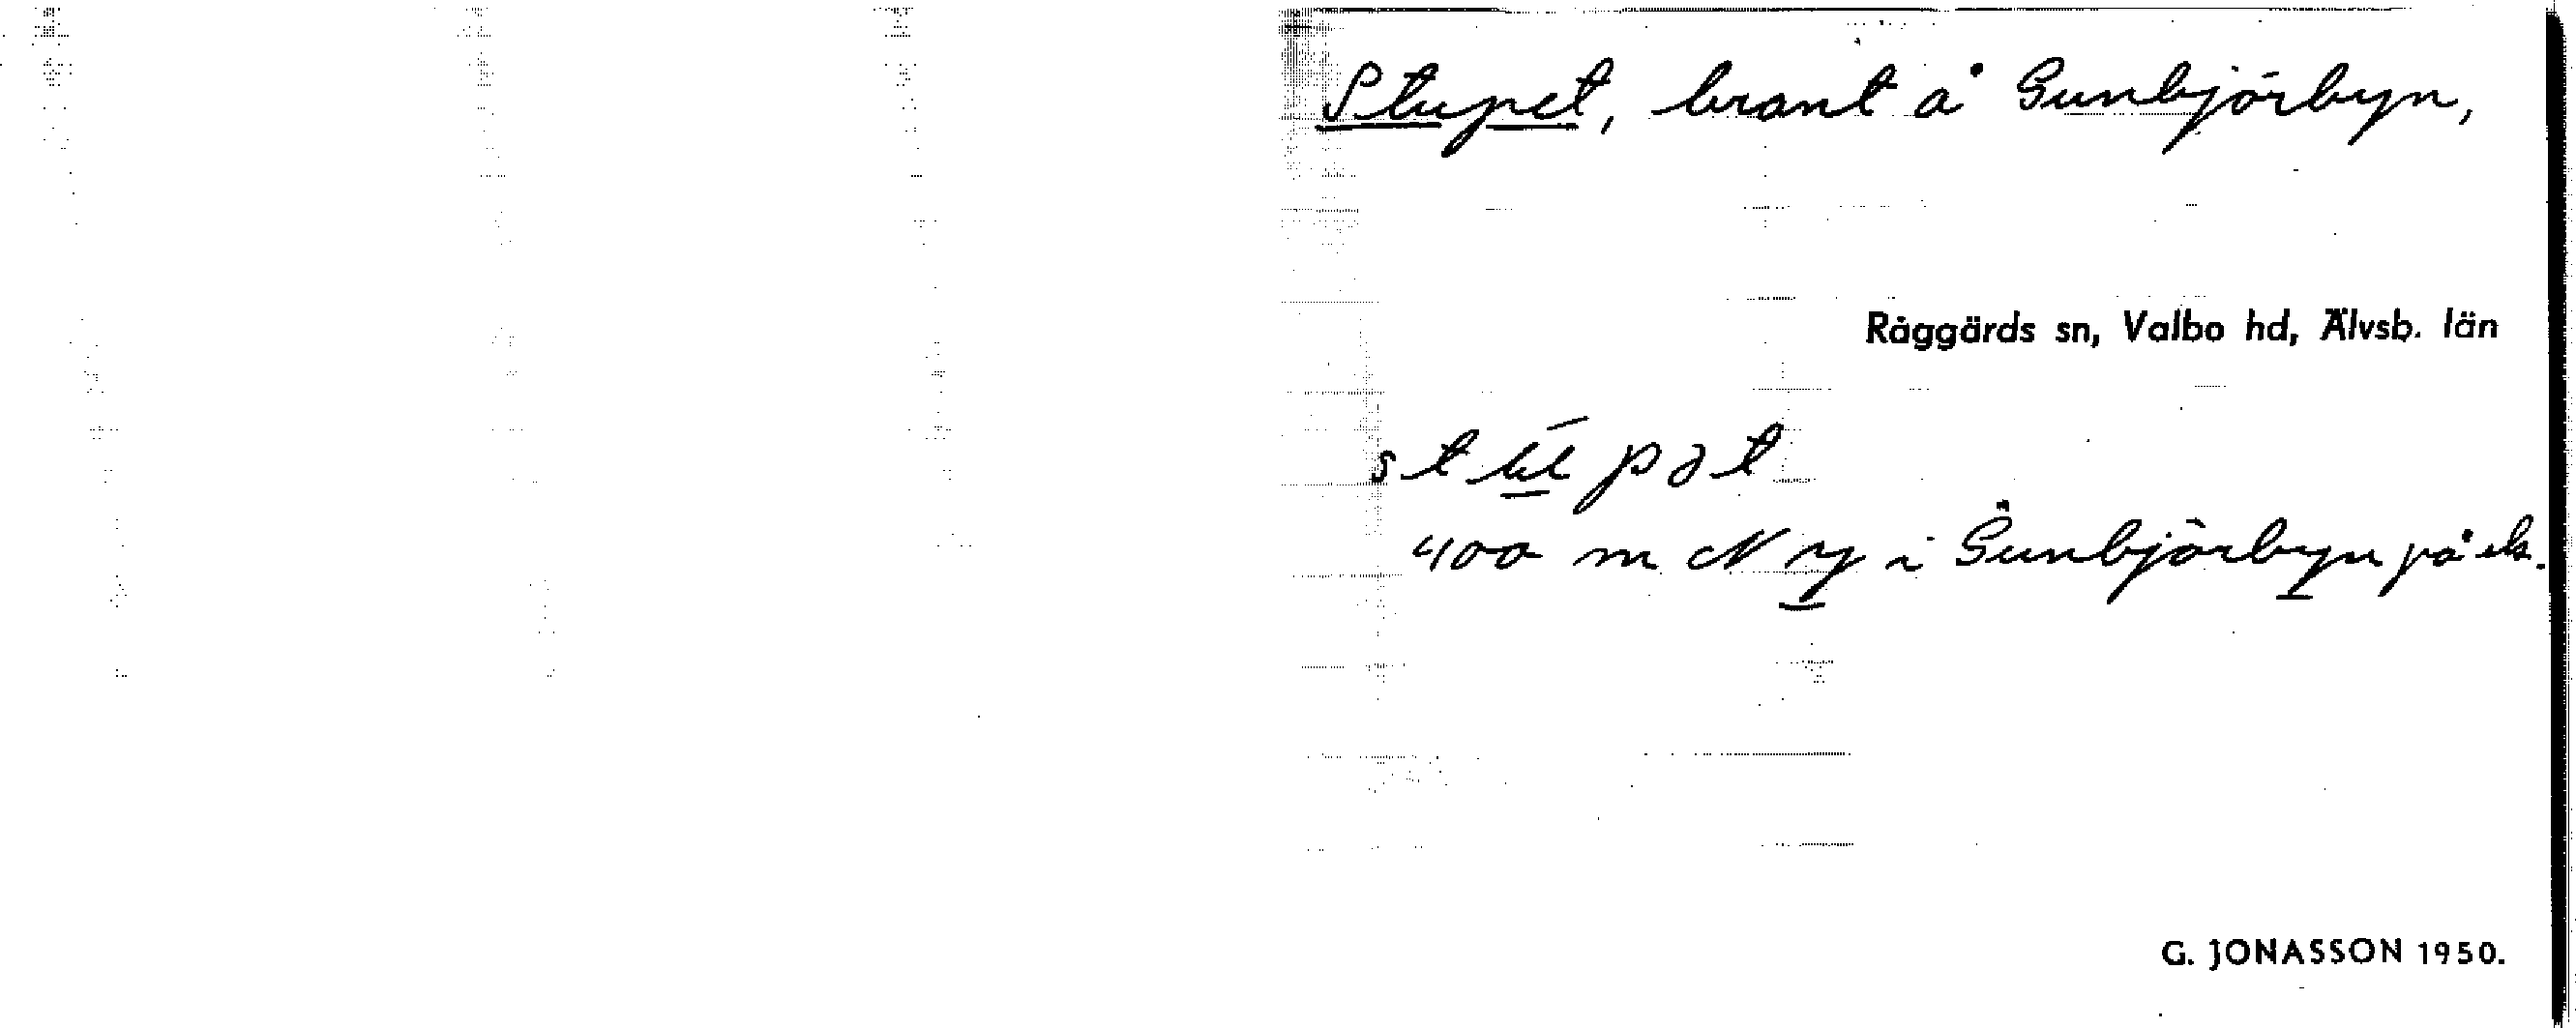 Stupet, brant å Gunbjörbyn,
Råggärds sn, Valbo hd, Älvsb. län
400 m N y i Gunbjörbyn på ek.
G. JONASSON 1950.